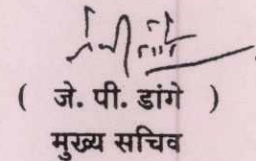 ( जे. पी. डांगे )
मुख्य सचिव